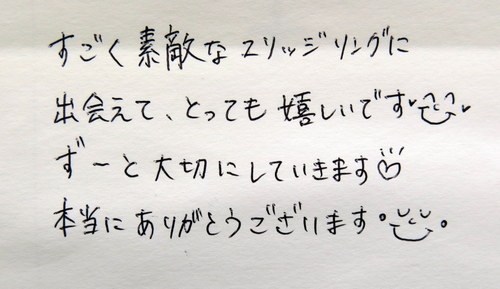 すごく素敵なエリッジリングに
出会えて、とっても嬉しいです
ず〜と大切にしていきます♡
本当にありがとうございます。